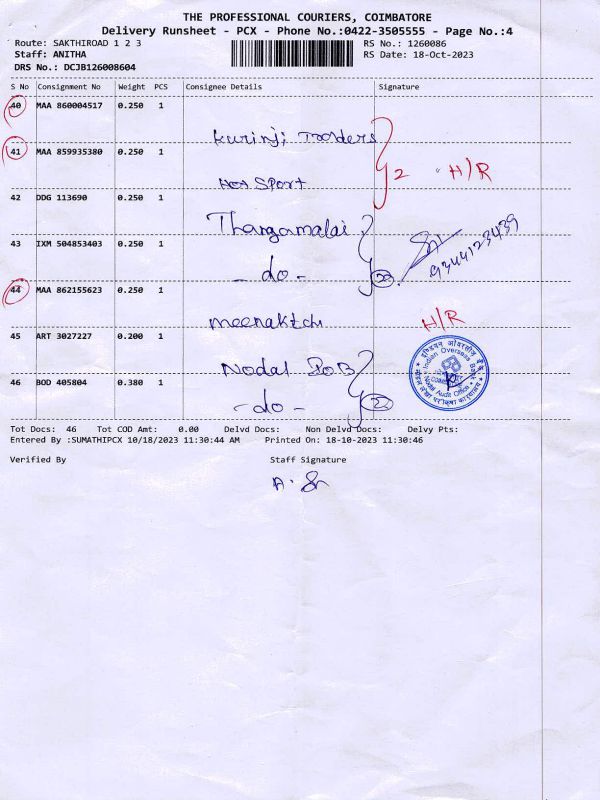 THE PROFESSIONAL COURIERS, COIMBATORE
Delivery Runsheet - PCX - Phone No.:0422-3505555 - Page No.:4
Route: SAKTHIROAD 1 2 3 RS No.: 1260086
Staff: ANITHA RS Date: 18-Oct-2023
DRS No.: DCJB126008604
S No Consignment No Weight PCS Consignee Details Signature
40 MAA 860004517 0.250 1
Kurinji Traders
41 MAA 859935380 0.250 1
2 H/R
Hot Sport
42 DDG 113690 0.250 1
Thangamalai
43 IXM 504853403 0.250 1
9344123439
- do -
44 MAA 862155623 0.250 1
meenakshi H/R
45 ART 3027227 0.200 1
Nodal IOB
46 BOD 405804 0.380 1
- do -
Indian Overseas Bank
Tot Docs: 46 Tot COD Amt: 0.00 Delvd Docs: Non Delvd Docs: Delvy Pts:
Entered By :SUMATHIPCX 10/18/2023 11:30:44 AM Printed On: 18-10-2023 11:30:46
Verified By Staff Signature